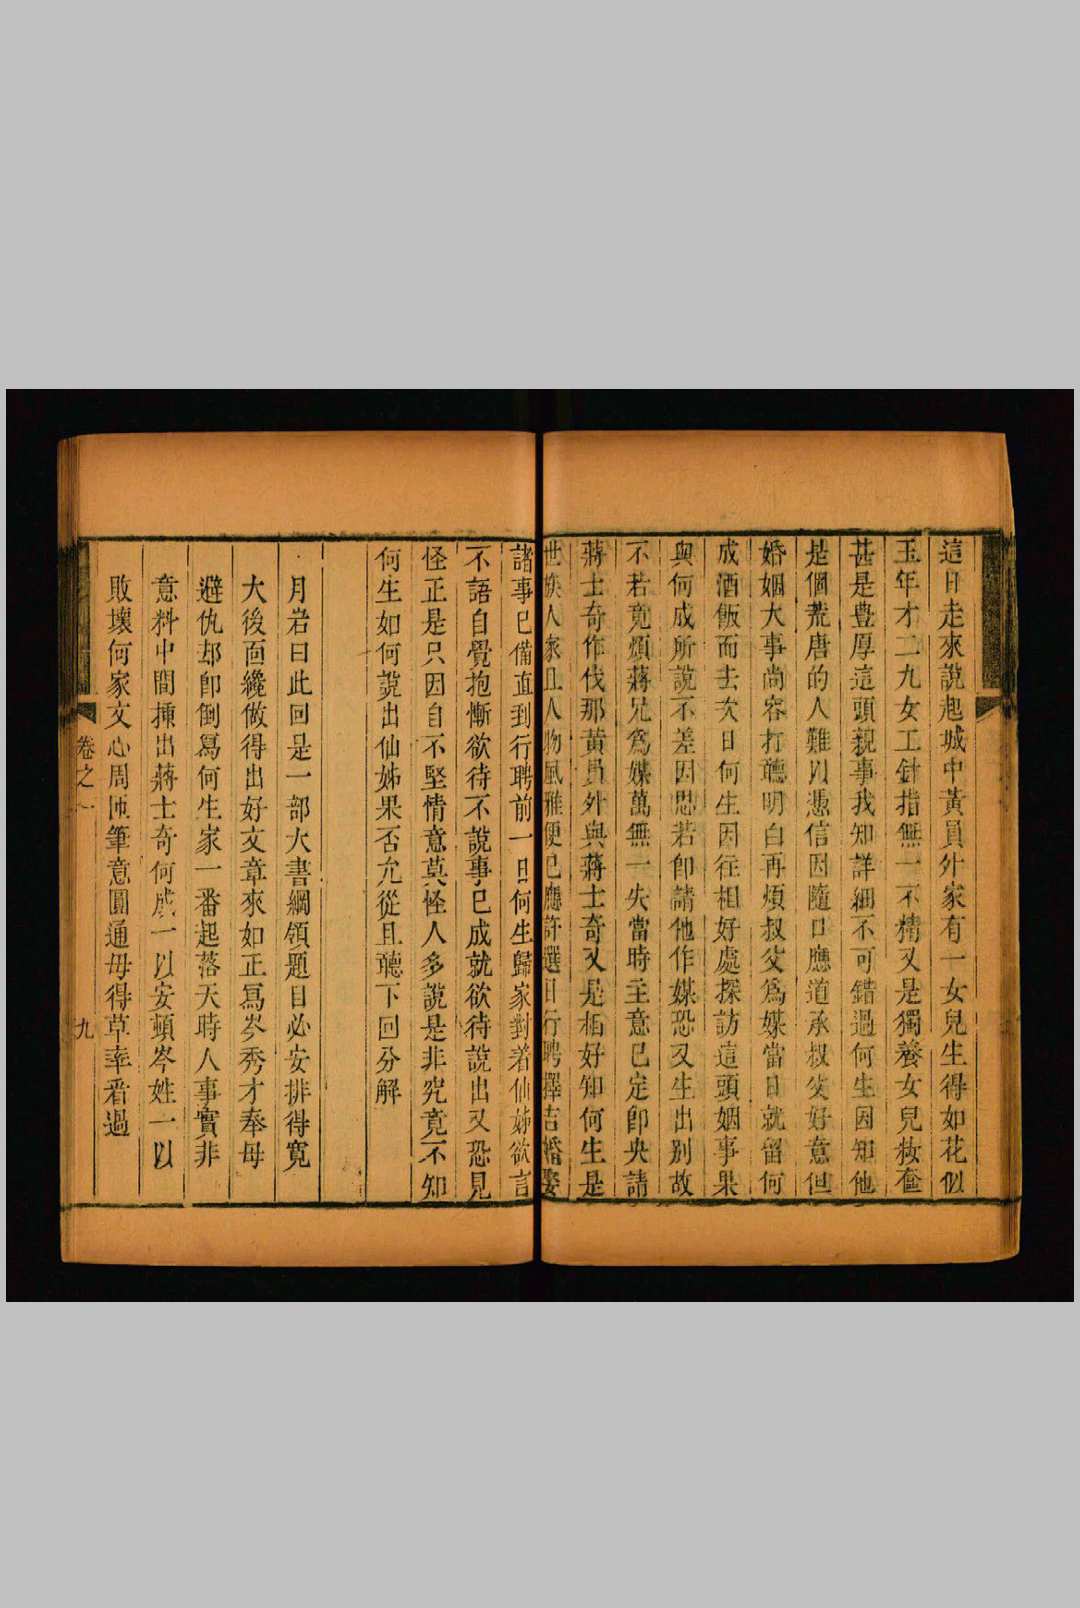 這日走來說起城中黃員外家有一女兒生得如花似
玉年才二九女工針指無一不精又是獨養女兒妝奩
甚是豊厚這頭親事我知詳細不可錯過何生因知他
是個荒唐的人難以憑信因隨口應道承叔父好意但
婚姻大事尚容打聽明白再煩叔父爲媒當日就留何
成酒飯而去次日何生因往相好處探訪這頭姻事果
與何成所說不差因思若卽請他作媒恐又生出别故
不若竟煩蔣兄爲媒萬無一失當時主意已定卽央請
蔣士奇作伐那黄員外與蔣士奇又是相好知何生是
世族人家且人物風雅便已應許選日行聘擇吉婚娶
諸事已備直到行聘前一日何生歸家對着仙姊欲言
不語自覺抱慚欲待不說事已成就欲待說出又恐見
怪正是只因自不堅情意莫怪人多說是非究竟不知
何生如何說出仙姊果否允從且聽下回分解
月岩曰此回是一部大書綱領題目必安排得寛
大後面纔做得出好文章來如正寫岑秀才奉母
避仇却卽倒寫何生家一番起落天時人事實非
意料中間揷出蔣士奇何成一以安頓岑姓一以
敗壞何家文心周匝筆意圓通毋得草率看過
卷之一
九